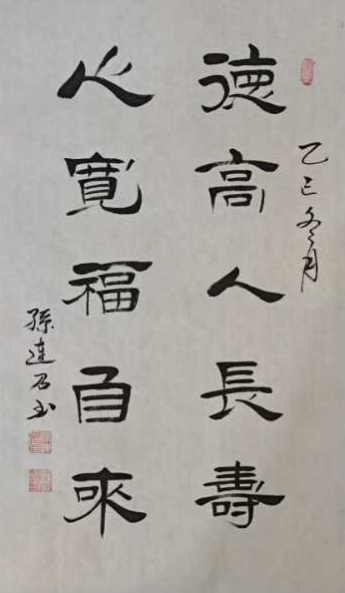 乙巳冬月
德高人長壽
心寬福自來
孫連石书